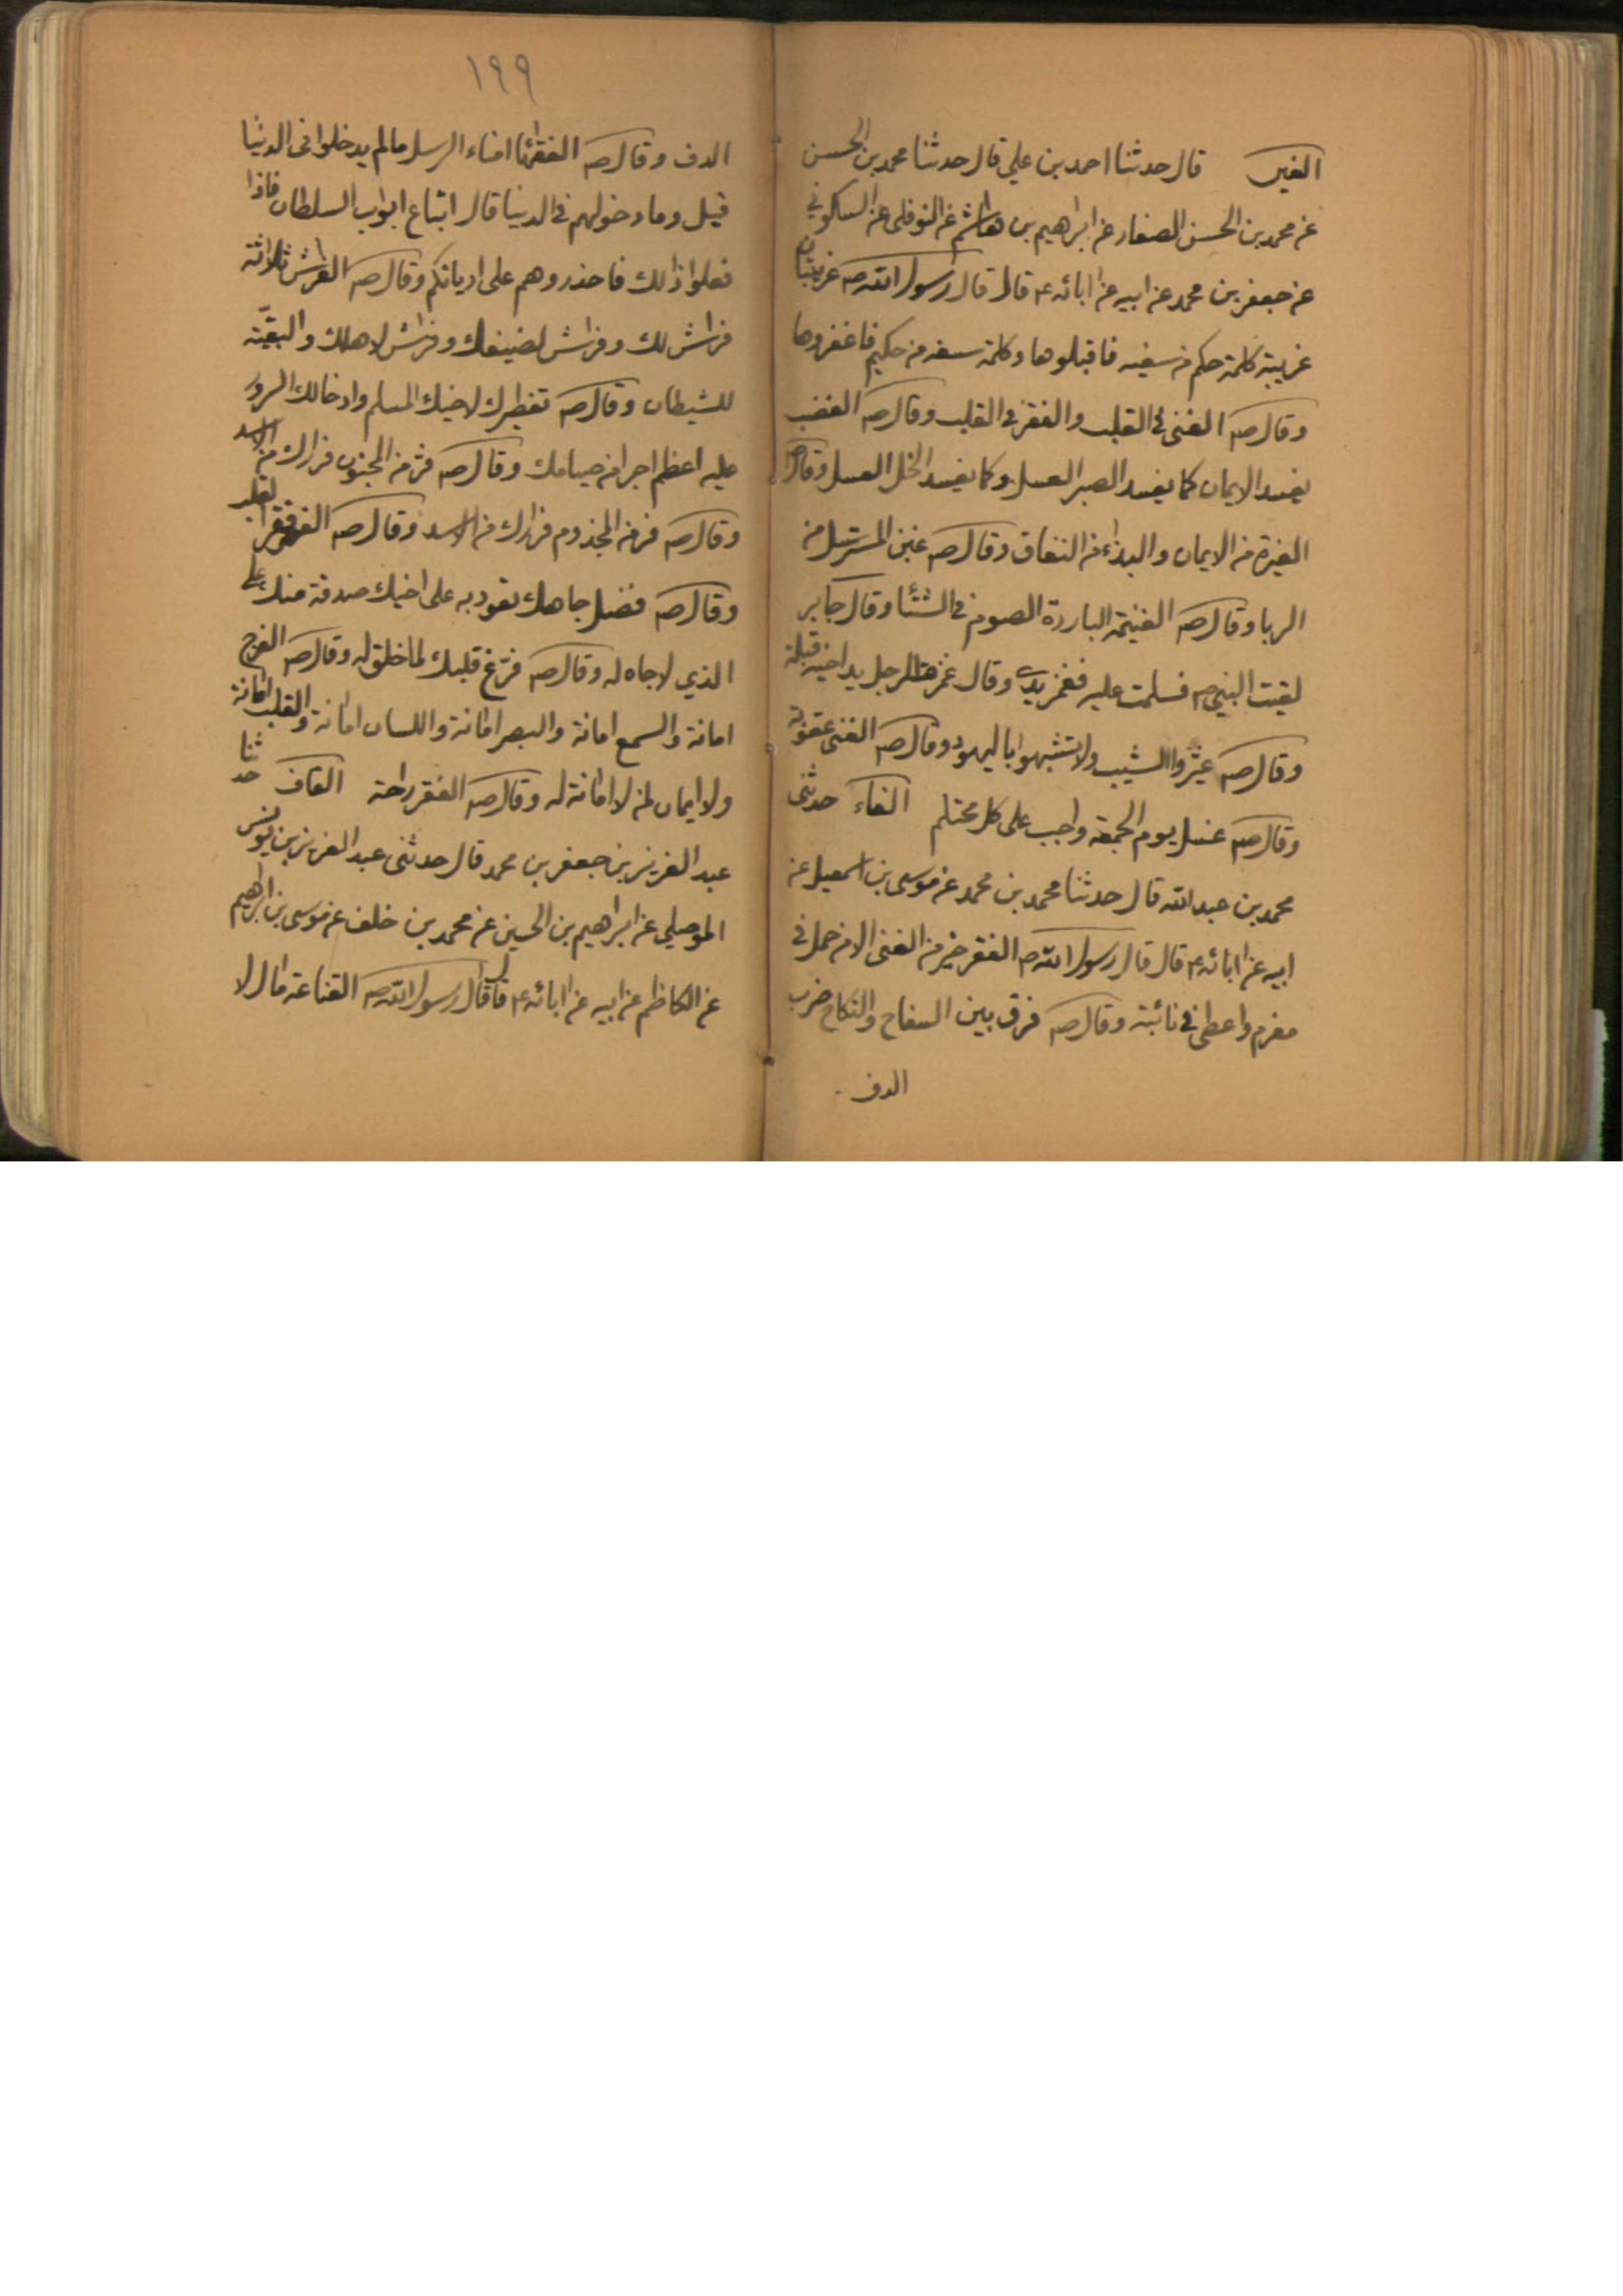 الغين قال حدثنا احمد بن علي قال حدثنا محمد بن الحسن
عن محمد بن الحسن الصفار عن ابراهيم بن هاشم عن النوفلي عن السكوني
عن جعفر بن محمد عن ابيه عن ابائه ع قال قال رسول الله صه غريبتان
غريبة كلمة حكم من سفيه فاقبلوها وكلمة سفه من حكيم فاغفروها
وقال صه الغنى في القلب والفقر في القلب وقال صه الغضب
يفسد الايمان كما يفسد الصبر العسل وكما يفسد الخل العسل وقال صه
الغيرة من الايمان والبذاء من النفاق وقال صه غبن المسترسل من
الربا وقال صه الغنيمة الباردة الصوم في الشتئا وقال جابر
لقيت النبي ص فسلمت عليه فغمز يدي وقال غمز الرجل يد اخيه قبلة
وقال صه غيروا الشيب ولا تشبهوا باليهود وقال صه الغنى عقوبة
وقال صه غسل يوم الجمعة واجب على كل محتلم الفاء حدثنى
محمد بن عبد الله قال حدثنا محمد بن محمد عن موسى بن اسمعيل عن
ابيه عن ابائه ع قال قال رسول الله ص الفقر خير من الغنى الا من حمل في
مغرم واعطى في نائبة وقال صه فرق بين السفاح والنكاح ضرب
الدف
١٩٩
الدف وقال صه الفقهئا امناء الرسل مالم يدخلوا فى الدنيا
قيل وما دخولهم في الدينا قال اتباع ابواب السلطان فاذا
فعلوا ذالك فاحذروهم على اديانكم وقال صه الفراش ثلاثة
فراش لك وفراش لضيفك وفراش لاهلك والبقيّة
للشيطان وقال صه تفطيرك لاخيك المسلم وادخالك السرور
عليه اعظم اجرا من صيامك وقال صه فر من المجنون فرارك من الاسد
وقال صه فر من المجذوم فرارك من الاسد وقال صه الفقر فقر القلب
وقال صه فضل جاهك تعود به على اخيك صدقة منك على
الذي لا جاه له وقال صه فرّغ قلبك لما خلق له وقال صه الفرج
امانة والسمع امانة والبصر امانة واللسان امانة والقلب امانة
ولا ايمان لمن لا امانة له وقال صه الفقر راحة القاف حدثنا
عبد العزيز بن جعفر بن محمد قال حدثنى عبد العزيز بن يونس
الموصلي عن ابراهيم بن الحسين عن محمد بن خلف عن موسى بن ابراهيم
عن الكاظم عن ابيه عن ابائه ع قال قال رسول الله صه القناعة مال لا